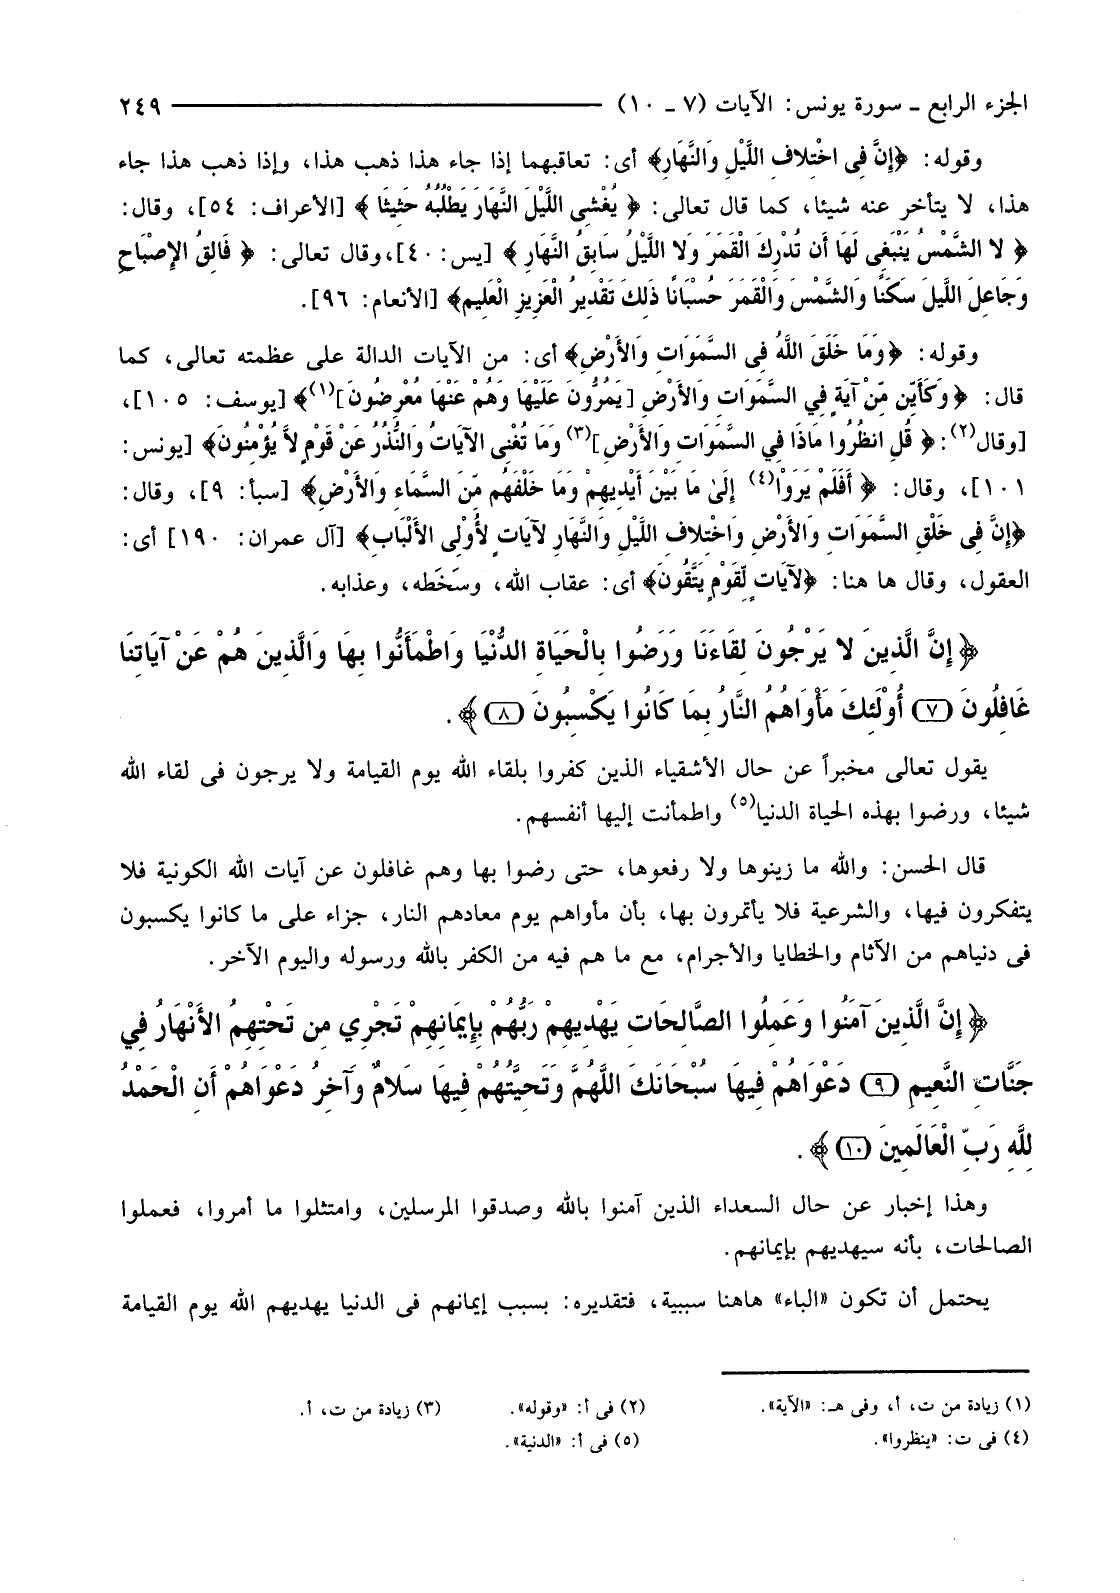 الجزء الرابع - سورة يونس: الآيات (٧ - ١٠) ٢٤٩
وقوله: ﴿إِنَّ فِى اخْتِلافِ اللَّيْلِ وَالنَّهَارِ﴾ أى: تعاقبهما إذا جاء هذا ذهب هذا، وإذا ذهب هذا جاء
هذا، لا يتأخر عنه شيئا، كما قال تعالى: ﴿ يُغْشِى اللَّيْلَ النَّهَارَ يَطْلُبُهُ حَثِيثًا ﴾ [الأعراف: ٥٤]، وقال:
﴿ لا الشَّمْسُ يَنْبَغِى لَهَا أَن تُدْرِكَ الْقَمَرَ وَلا اللَّيْلُ سَابِقُ النَّهَارِ ﴾ [يس: ٤٠]،وقال تعالى: ﴿ فَالِقُ الإِصْبَاحِ
وَجَاعِلَ اللَّيلَ سَكَنًا وَالشَّمْسَ وَالْقَمَرَ حُسْبَانًا ذَلِكَ تَقْدِيرُ الْعَزِيزِ الْعَلِيم﴾ [الأنعام: ٩٦].
وقوله: ﴿وَمَا خَلَقَ اللَّهُ فِى السَّمَوَاتِ وَالأَرْضِ﴾ أى: من الآيات الدالة على عظمته تعالى، كما
قال: ﴿ وَكَأَيِّن مِّنْ آيَةٍ فِي السَّمَوَاتِ وَالأَرْضِ [يَمُرُّونَ عَلَيْهَا وَهُمْ عَنْهَا مُعْرِضُونَ](١)﴾ [يوسف: ١٠٥]،
[وقال(٢): ﴿ قُلِ انظُرُوا مَاذَا فِي السَّمَوَاتِ وَالأَرْضِ](٣) وَمَا تُغْنِى الآيَاتُ وَالنُّذُرُ عَنْ قَوْمٍ لاَّ يُؤْمِنُونَ﴾ [يونس:
١٠١]، وقال: ﴿ أَفَلَمْ يَرَوْا(٤) إِلَىٰ مَا بَيْنَ أَيْدِيهِمْ وَمَا خَلْفَهُم مِّنَ السَّمَاءِ وَالأَرْضِ﴾ [سبأ: ٩]، وقال:
﴿إِنَّ فِى خَلْقِ السَّمَوَاتِ وَالأَرْضِ وَاخْتِلافِ اللَّيْلِ وَالنَّهَارِ لآيَاتٍ لأُوْلِى الأَلْبَابِ﴾ [آل عمران: ١٩٠] أى:
العقول، وقال ها هنا: ﴿لآيَاتٍ لِّقَوْمٍ يَتَّقُونَ﴾ أى: عقاب الله، وسَخَطه، وعذابه.
﴿ إِنَّ الَّذِينَ لا يَرْجُونَ لِقَاءَنَا وَرَضُوا بِالْحَيَاةِ الدُّنْيَا وَاطْمَأَنُّوا بِهَا وَالَّذِينَ هُمْ عَنْ آيَاتِنَا
غَافِلُونَ (٧) أُوْلَئِكَ مَأْوَاهُمُ النَّارُ بِمَا كَانُوا يَكْسِبُونَ (٨) ﴾ .
يقول تعالى مخبراً عن حال الأشقياء الذين كفروا بلقاء الله يوم القيامة ولا يرجون فى لقاء الله
شيئا، ورضوا بهذه الحياة الدنيا(٥) واطمأنت إليها أنفسهم.
قال الحسن: والله ما زينوها ولا رفعوها، حتى رضوا بها وهم غافلون عن آيات الله الكونية فلا
يتفكرون فيها، والشرعية فلا يأتمرون بها، بأن مأواهم يوم معادهم النار، جزاء على ما كانوا يكسبون
فى دنياهم من الآثام والخطايا والأجرام، مع ما هم فيه من الكفر بالله ورسوله واليوم الآخر.
﴿ إِنَّ الَّذِينَ آمَنُوا وَعَمِلُوا الصَّالِحَاتِ يَهْدِيهِمْ رَبُّهُمْ بِإِيمَانِهِمْ تَجْرِي مِن تَحْتِهِمُ الأَنْهَارُ فِي
جَنَّاتِ النَّعِيمِ (٩) دَعْوَاهُمْ فِيهَا سُبْحَانَكَ اللَّهُمَّ وَتَحِيَّتُهُمْ فِيهَا سَلامٌ وَآخِرُ دَعْوَاهُمْ أَنِ الْحَمْدُ
لِلَّهِ رَبِّ الْعَالَمِينَ (١٠) ﴾ .
وهذا إخبار عن حال السعداء الذين آمنوا بالله وصدقوا المرسلين، وامتثلوا ما أمروا، فعملوا
الصالحات، بأنه سيهديهم بإيمانهم.
يحتمل أن تكون «الباء» هاهنا سببية، فتقديره: بسبب إيمانهم فى الدنيا يهديهم الله يوم القيامة
(١) زيادة من ت، أ، وفى هـ: «الآية». (٢) فى أ: «وقوله». (٣) زيادة من ت، أ.
(٤) فى ت: «ينظروا». (٥) فى أ: «الدنية».